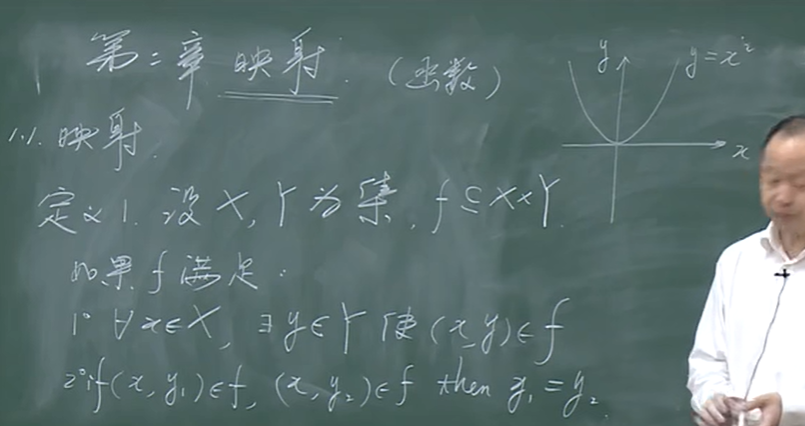 第二章 映射. (函数)
y
y=x²
x
(1). 映射.
定义1. 设X, Y为集, f⊆X×Y.
如果f满足:
1° ∀x∈X, ∃y∈Y 使(x,y)∈f
2° if (x, y₁)∈f, (x, y₂)∈f then y₁=y₂.